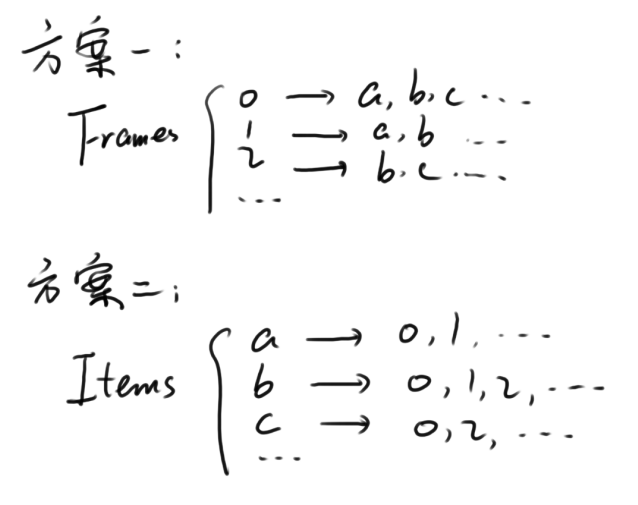 方案一:
Frames { 0 → a, b, c ...
1 → a, b ...
2 → b, c ...
...
方案二:
Items { a → 0, 1, ...
b → 0, 1, 2, ...
c → 0, 2, ...
...